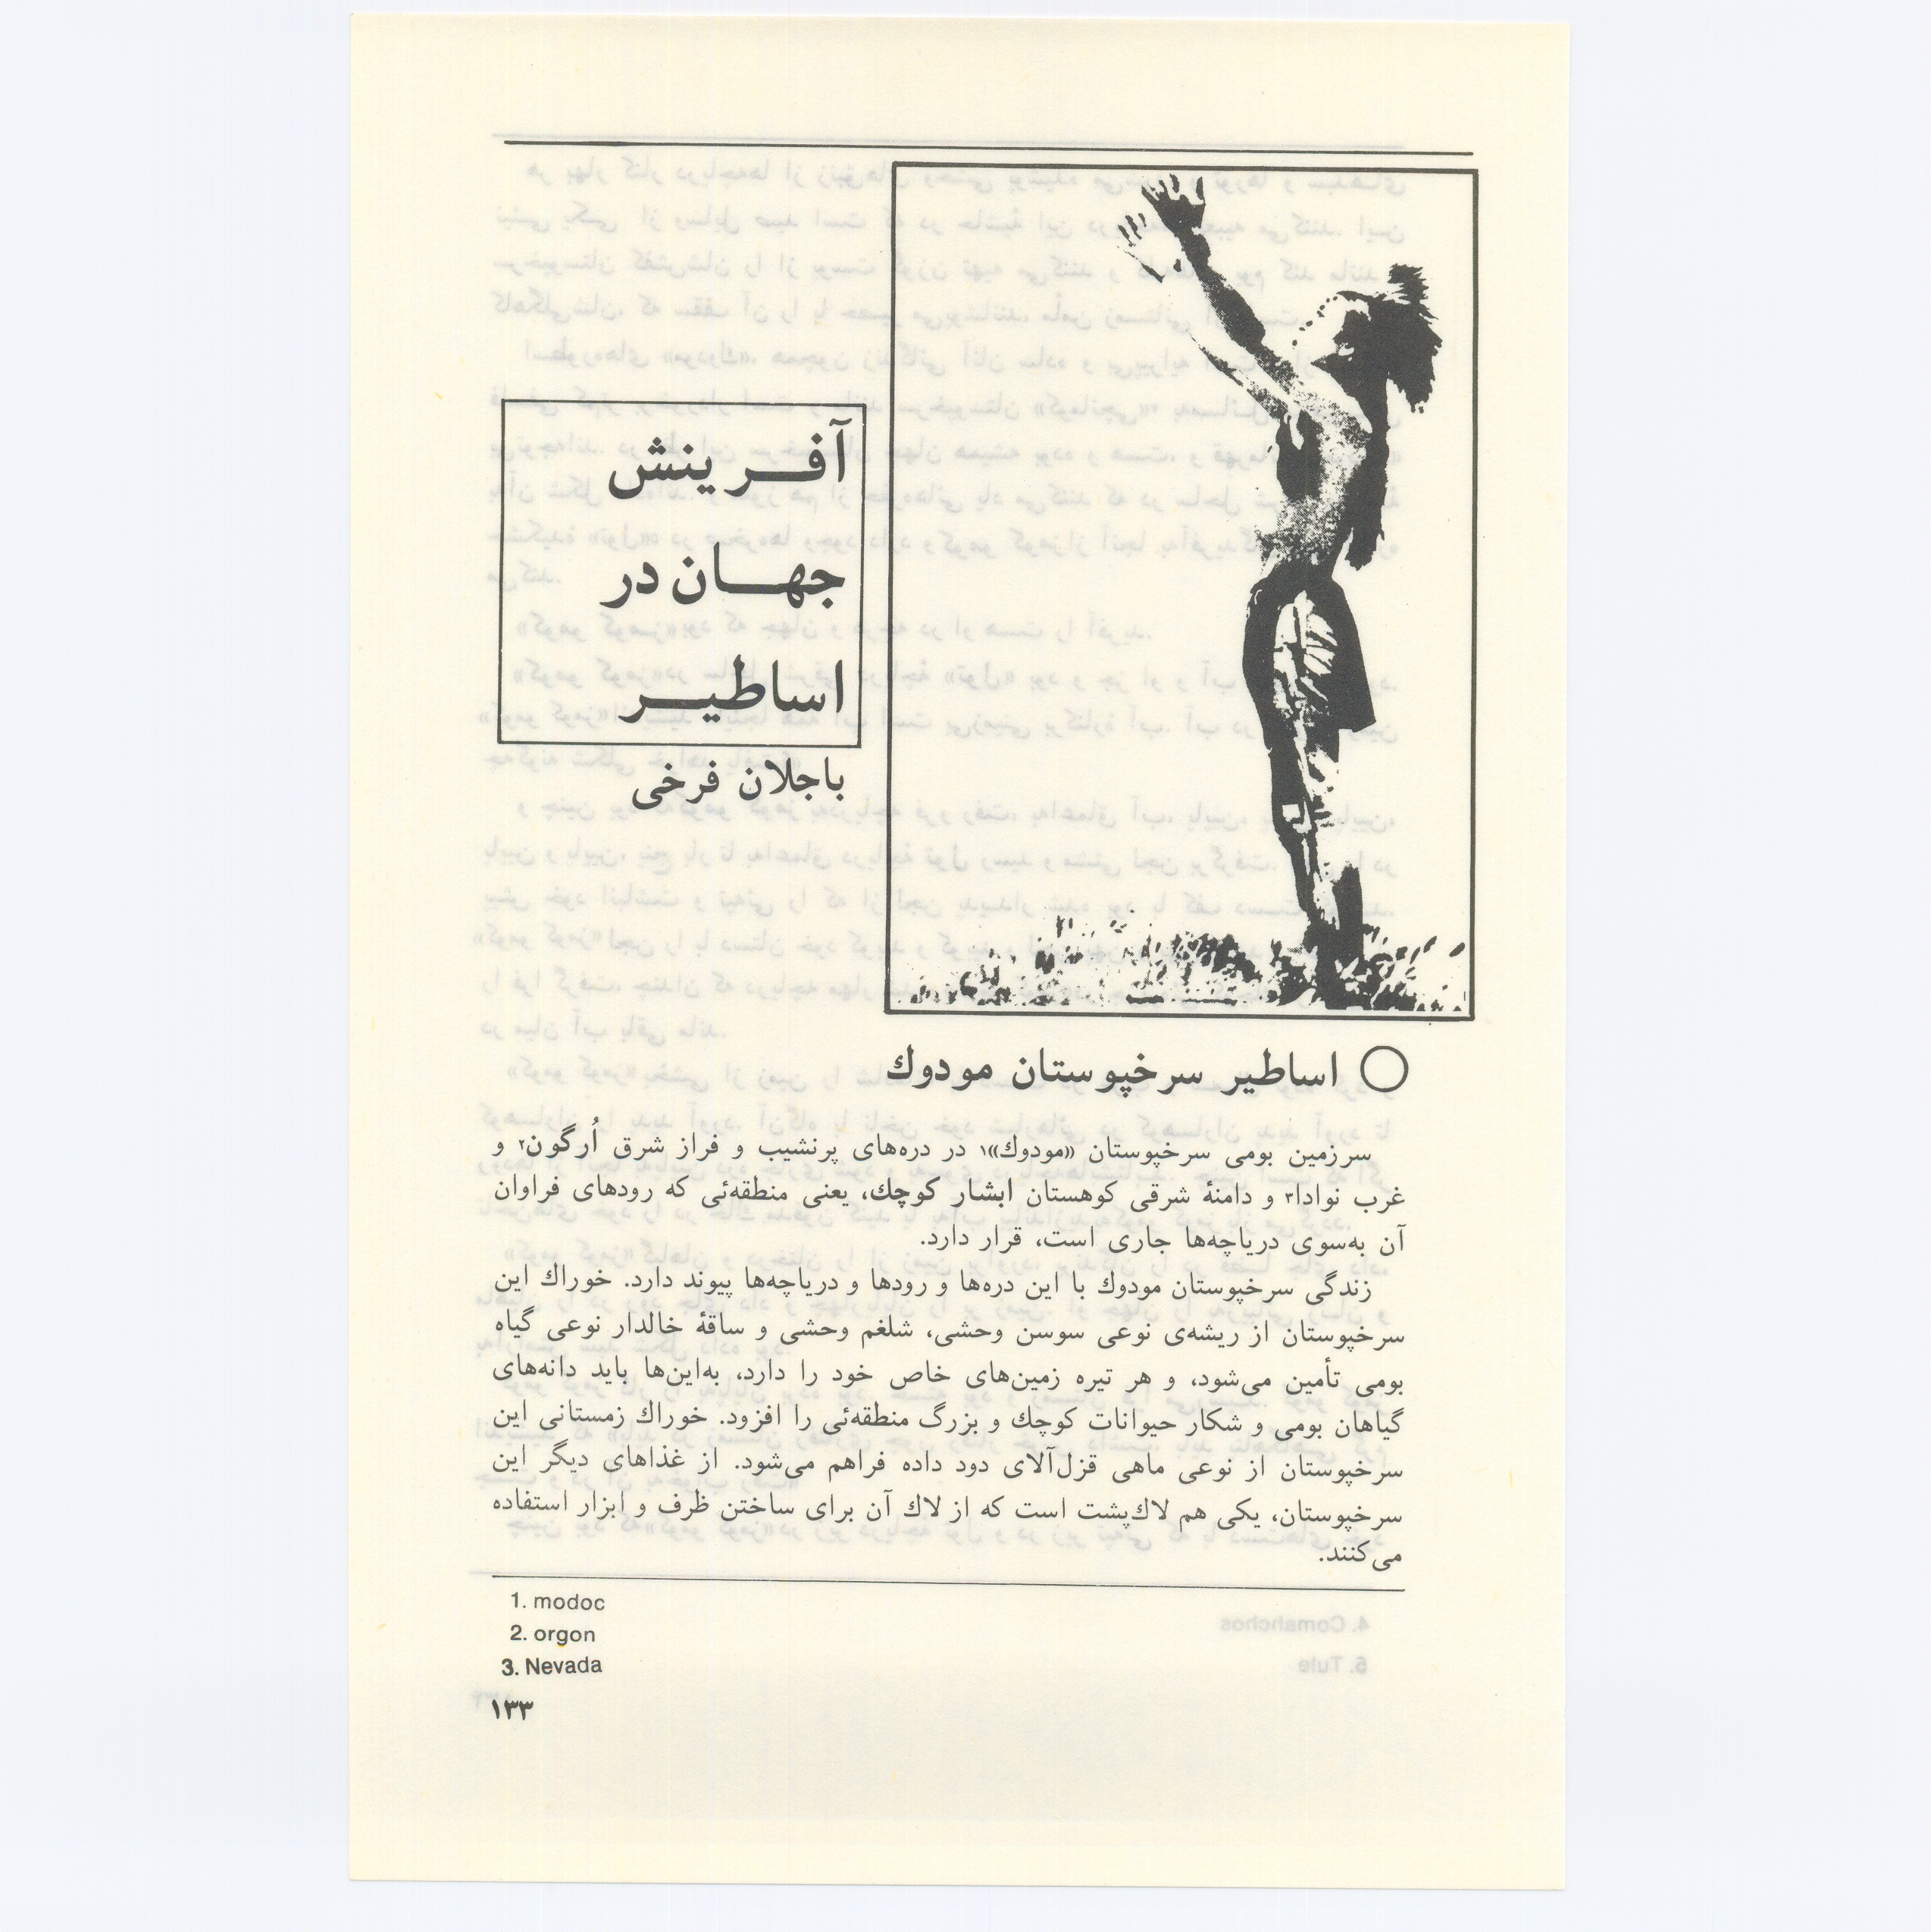 آفرینش
جهان در
اساطیر
باجلان فرخی
اساطیر سرخپوستان مودوك
سرزمین بومی سرخپوستان «مودوك»۱ در دره‌های پرنشیب و فراز شرق اُرگون۲ و
غرب نوادا۳ و دامنهٔ شرقی کوهستان ابشار کوچك، یعنی منطقه‌ئی که رودهای فراوان
آن به‌سوی دریاچه‌ها جاری است، قرار دارد.
زندگی سرخپوستان مودوك با این دره‌ها و رودها و دریاچه‌ها پیوند دارد. خوراك این
سرخپوستان از ریشه‌ی نوعی سوسن وحشی، شلغم وحشی و ساقهٔ خالدار نوعی گیاه
بومی تأمین می‌شود، و هر تیره زمین‌های خاص خود را دارد، به‌این‌ها باید دانه‌های
گیاهان بومی و شکار حیوانات کوچك و بزرگ منطقه‌ئی را افزود. خوراك زمستانی این
سرخپوستان از نوعی ماهی قزل‌آلای دود داده فراهم می‌شود. از غذاهای دیگر این
سرخپوستان، یکی هم لاك‌پشت است که از لاك آن برای ساختن ظرف و ابزار استفاده
می‌کنند.
1. modoc
2. orgon
3. Nevada
۱۳۳